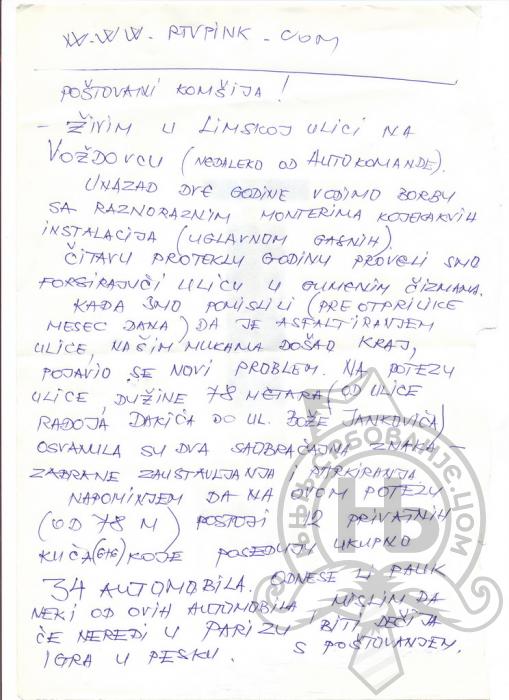 WWW.RTVPINK.COM
POŠTOVANI KOMŠIJA!
- ŽIVIM U LIMSKOJ ULICI NA
VOŽDOVCU (NEDALEKO OD AUTOKOMANDE).
UNAZAD DVE GODINE VODIMO BORBU
SA RAZNORAZNIM MONTERIMA KOJEKAKVIH
INSTALACIJA (UGLAVNOM GASNIH).
ČITAVU PROTEKLU GODINU PROVELI SMO
FORSIRAJUČI ULICU U GUMENIM ČIZMAMA.
KADA SMO POMISLILI (PRE OTPRILIKE
MESEC DANA) DA JE ASFALTIRANJEM
ULICE, NAŠIM MUKAMA DOŠAO KRAJ,
POJAVIO SE NOVI PROBLEM. NA POTEZU
ULICE, DUŽINE 78 METARA (OD ULICE
RADOJA DAKIĆA DO UL. BOŽE JANKOVIĆA)
OSVANULA SU DVA SAOBRAĆAJNA ZNAKA -
ZABRANE ZAUSTAVLJANJA I PARKIRANJA
NAPOMINJEM DA NA OVOM POTEZU
(OD 78 M) POSTOJI 12 PRIVATNIH
KUĆA (6+6) KOJE POSEDUJU UKUPNO
34 AUTOMOBILA. ODNESE LI PAUK
NEKI OD OVIH AUTOMOBILA, MISLIM DA
ĆE NEREDI U PARIZU BITI DEČIJA
IGRA U PESKU. S POŠTOVANJEM,